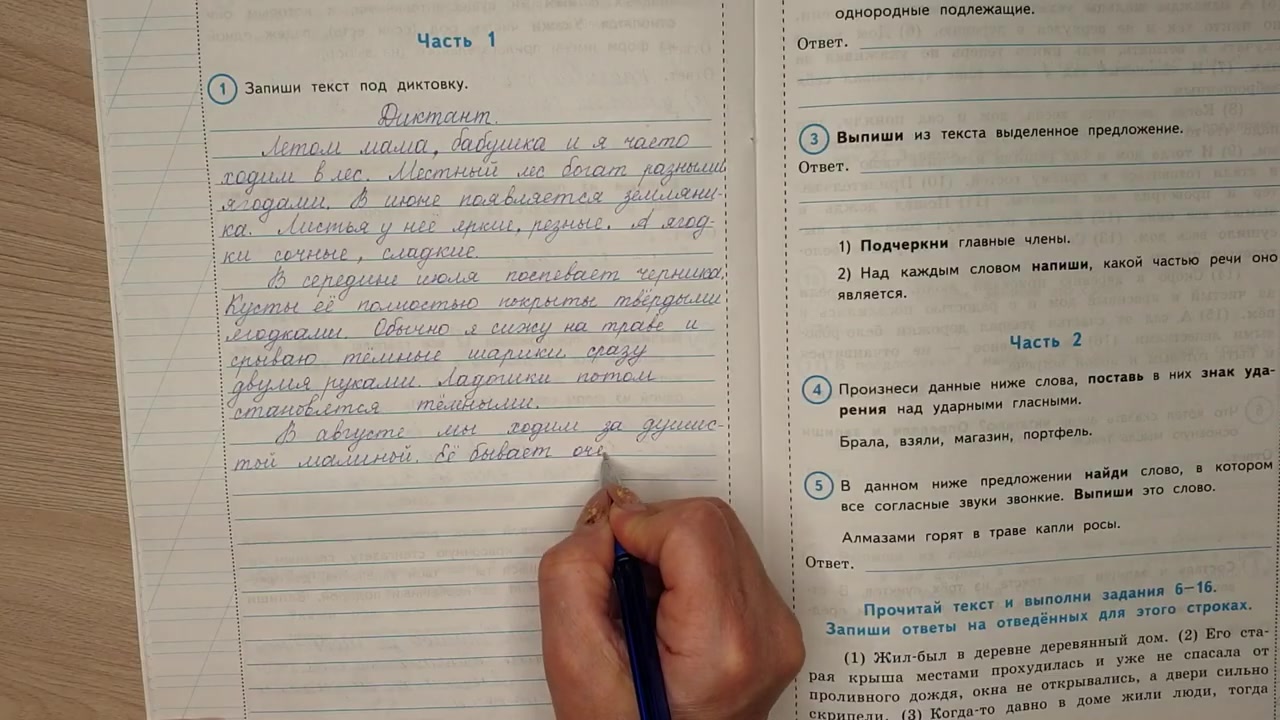 Часть 1
1 Запиши текст под диктовку.
Диктант.
Летом мама, бабушка и я часто
ходим в лес. Местный лес богат разными
ягодами. В июне появляется земляни-
ка. Листья у неё яркие, резные. А ягод-
ки сочные, сладкие.
В середине июля поспевает черника.
Кусты её полностью покрыты твёрдыми
ягодками. Обычно я сижу на траве и
срываю тёмные шарики сразу
двумя руками. Ладошки потом
становятся тёмными.
В августе мы ходим за душис-
той малиной. Её бывает оче
однородные подлежащие.
Ответ.
3 Выпиши из текста выделенное предложение.
Ответ.
1) Подчеркни главные члены.
2) Над каждым словом напиши, какой частью речи оно
является.
Часть 2
4 Произнеси данные ниже слова, поставь в них знак уда-
рения над ударными гласными.
Брала, взяли, магазин, портфель.
5 В данном ниже предложении найди слово, в котором
все согласные звуки звонкие. Выпиши это слово.
Алмазами горят в траве капли росы.
Ответ.
Прочитай текст и выполни задания 6–16.
Запиши ответы на отведённых для этого строках.
(1) Жил-был в деревне деревянный дом. (2) Его ста-
рая крыша местами прохудилась и уже не спасала от
проливного дождя, окна не открывались, а двери сильно
скрипели. (3) Когда-то давно в доме жили люди, тогда